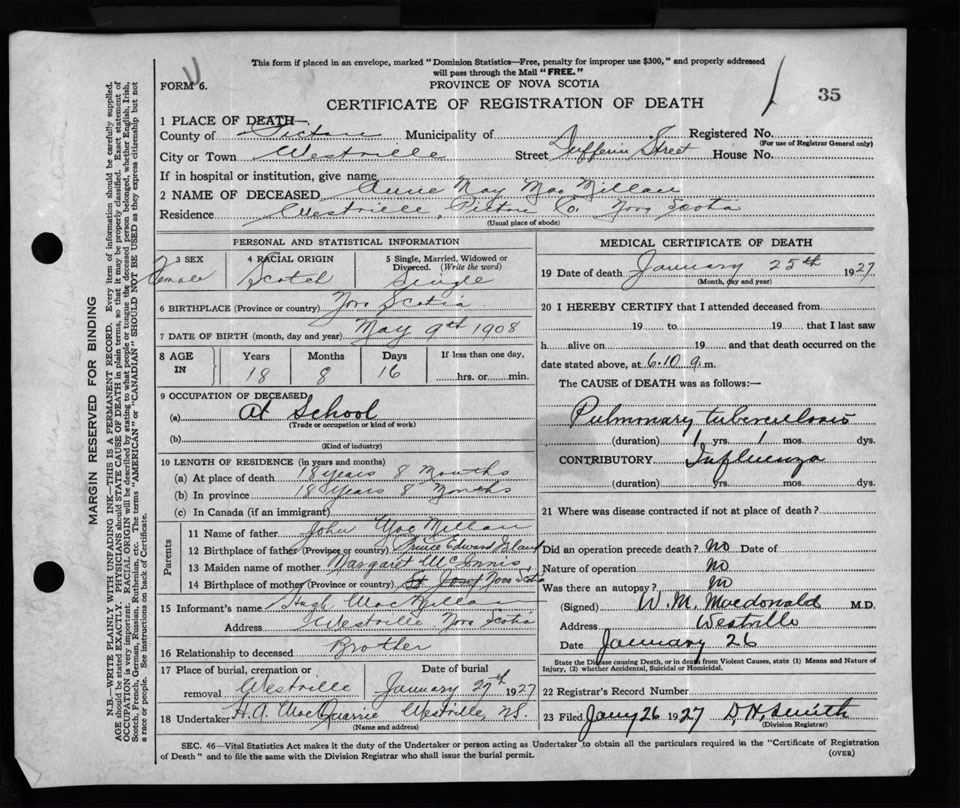 This form if placed in an envelope, marked "Dominion Statistics—Free, penalty for improper use $300," and properly addressed
will pass through the Mail "FREE."
FORM 6.
PROVINCE OF NOVA SCOTIA
CERTIFICATE OF REGISTRATION OF DEATH
35
1 PLACE OF DEATH—
County of Pictou Municipality of Registered No.
(For use of Registrar General only)
City or Town Westville Street Dufferin Street House No.
If in hospital or institution, give name
2 NAME OF DECEASED Annie May MacMillan
Residence Westville, Pictou Co. Nova Scotia
(Usual place of abode)
PERSONAL AND STATISTICAL INFORMATION
3 SEX 4 RACIAL ORIGIN 5 Single, Married, Widowed or Divorced. (Write the word)
Female Scotch Single
6 BIRTHPLACE (Province or country) Nova Scotia
7 DATE OF BIRTH (month, day and year) May 9th 1908
8 AGE IN Years Months Days If less than one day,
18 8 16 hrs. or min.
9 OCCUPATION OF DECEASED
(a) At School
(Trade or occupation or kind of work)
(b)
(Kind of industry)
10 LENGTH OF RESIDENCE (in years and months)
(a) At place of death 18 years 8 Months
(b) In province 18 Years 8 Months
(c) In Canada (if an immigrant)
Parents
11 Name of father John MacMillan
12 Birthplace of father (Province or country) Prince Edward Island
13 Maiden name of mother Margaret McInnis
14 Birthplace of mother (Province or country) Nova Scotia
15 Informant's name Hugh MacMillan
Address Westville Nova Scotia
16 Relationship to deceased Brother
17 Place of burial, cremation or removal Westville
Date of burial January 27th 1927
18 Undertaker H. A. MacQuarrie Westville, N.S.
(Name and address)
MEDICAL CERTIFICATE OF DEATH
19 Date of death January 25th 1927
(Month, day and year)
20 I HEREBY CERTIFY that I attended deceased from
19 to 19 that I last saw
h alive on 19 and that death occurred on
date stated above, at 6.10 m.
The CAUSE of DEATH was as follows:—
Pulmonary tuberculosis
(duration) 1 yrs. 1 mos. dys.
CONTRIBUTORY Influenza
(duration) yrs. mos. dys.
21 Where was disease contracted if not at place of death?
Did an operation precede death? No Date of
Nature of operation no
Was there an autopsy? no
(Signed) W. M. Macdonald M.D.
Address Westville
Date January 26
State the Disease causing Death, or in death from Violent Causes, state (1) Means and Nature of
Injury, (2) whether Accidental, Suicidal or Homicidal.
22 Registrar's Record Number
23 Filed Jany 26 1927 D. H. Smith
(Division Registrar)
SEC. 46—Vital Statistics Act makes it the duty of the Undertaker or person acting as Undertaker to obtain all the particulars required in the "Certificate of Registration
of Death" and to file the same with the Division Registrar who shall issue the burial permit. (OVER)
MARGIN RESERVED FOR BINDING
N.B.—WRITE PLAINLY WITH UNFADING INK—THIS IS A PERMANENT RECORD. Every item of information should be carefully supplied.
AGE should be stated EXACTLY. PHYSICIANS should STATE CAUSE OF DEATH in plain terms, so that it may be properly classified. Exact statement of
OCCUPATION is very important. RACIAL ORIGIN will be described by stating to what people or tongue the deceased person belonged, whether English, Irish,
Scotch, French, German, Russian, Ruthenian, etc. The terms "AMERICAN" or "CANADIAN" SHOULD NOT BE USED as they express citizenship but not
a race or people. See instructions on back of Certificate.